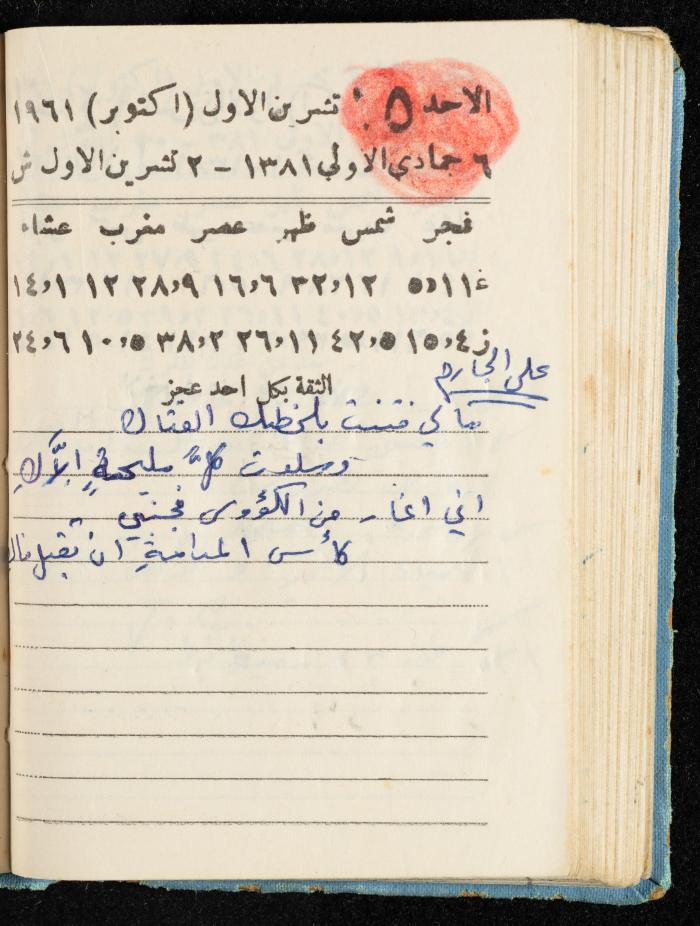 الاحد ١٥ تشرين الاول (اكتوبر) ١٩٦١
٦ جمادي الاولي ١٣٨١ - ٢ تشرين الاول ش
فجر شمس ظهر عصر مغرب عشاء
غ ١١،٥ ١٢ ٣٢،٦ ١٦،٩ ٢٨،١٢ ١٤،١
ز ٤،١٥ ٤٢،٥ ٢٦،١١ ٣٨،٢ ١٠،٥ ٢٤،٦
الثقة بكل احد عجز
علي الجارم
مالي فتنت بلحظك الفتاك
وسلوت كل مليحةٍ إلاَّكِ
اني اغار من الكؤوس فجنبي
كأس المدامةِ ان تقبل فاك